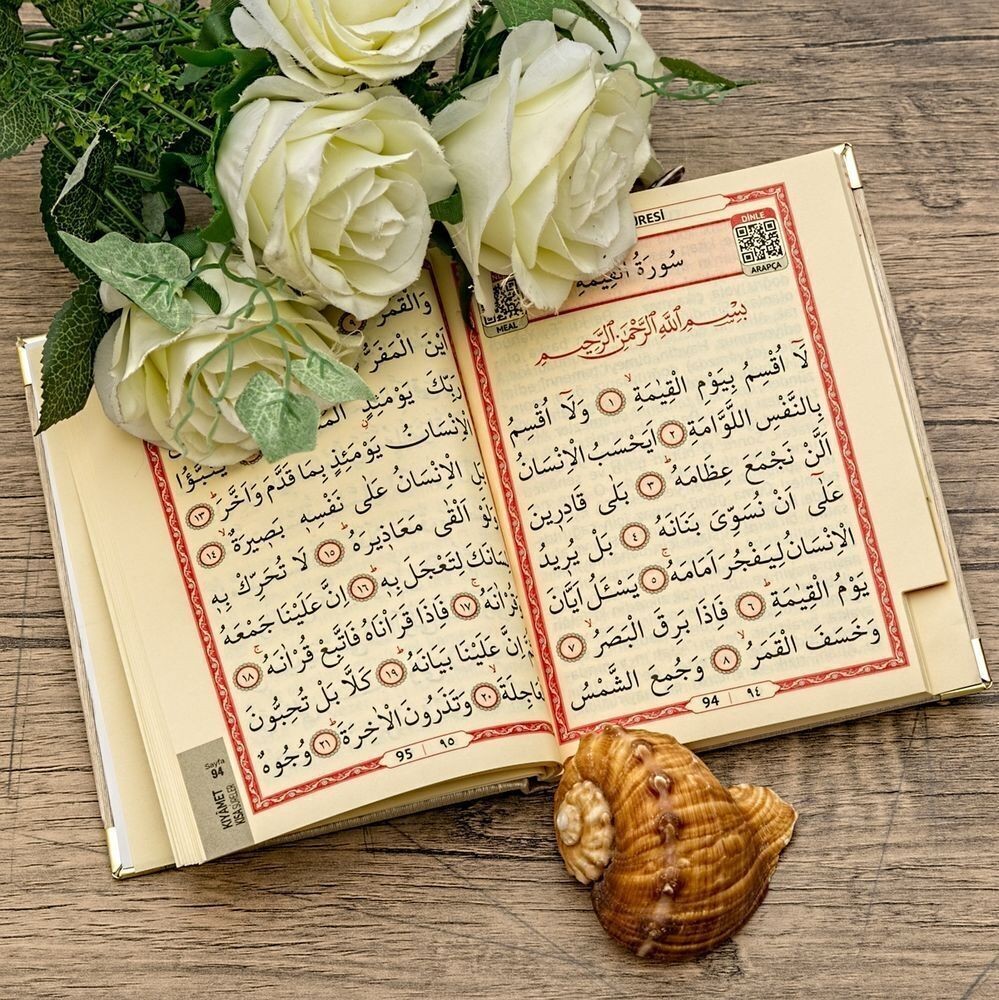 RESİ
DİNLE
ARAPÇA
MEAL
سُورَةُ الْقِيٰمَةِ
بِسْمِ اللّٰهِ الرَّحْمٰنِ الرَّحِيمِ
لَٓا اُقْسِمُ بِيَوْمِ الْقِيٰمَةِۙ ﴿١﴾ وَلَٓا اُقْسِمُ
بِالنَّفْسِ اللَّوَّامَةِ ﴿٢﴾ اَيَحْسَبُ الْاِنْسَانُ
اَلَّنْ نَجْمَعَ عِظَامَهُۜ ﴿٣﴾ بَلٰى قَادِرِينَ
عَلٰٓى اَنْ نُسَوِّيَ بَنَانَهُ ﴿٤﴾ بَلْ يُرِيدُ
الْاِنْسَانُ لِيَفْجُرَ اَمَامَهُۚ ﴿٥﴾ يَسْـَٔلُ اَيَّانَ
يَوْمُ الْقِيٰمَةِۜ ﴿٦﴾ فَاِذَا بَرِقَ الْبَصَرُۙ ﴿٧﴾
وَخَسَفَ الْقَمَرُۙ ﴿٨﴾ وَجُمِعَ الشَّمْسُ
94 | ٩٤
وَالْقَمَرُ
اَيْنَ الْمَفَرُّ
رَبِّكَ يَوْمَئِذٍ
الْاِنْسَانُ يَوْمَئِذٍ بِمَا قَدَّمَ وَاَخَّرَۜ ﴿١٣﴾
بَلِ الْاِنْسَانُ عَلٰى نَفْسِه۪ بَص۪يرَةٌۙ ﴿١٤﴾
وَلَوْ اَلْقٰى مَعَاذ۪يرَهُۜ ﴿١٥﴾ لَا تُحَرِّكْ بِه۪
لِسَانَكَ لِتَعْجَلَ بِه۪ۜ ﴿١٦﴾ اِنَّ عَلَيْنَا جَمْعَهُ
وَقُرْاٰنَهُۚ ﴿١٧﴾ فَاِذَا قَرَأْنَاهُ فَاتَّبِعْ قُرْاٰنَهُۚ ﴿١٨﴾
اِنَّ عَلَيْنَا بَيَانَهُۜ ﴿١٩﴾ كَلَّا بَلْ تُحِبُّونَ
الْعَاجِلَةَۙ ﴿٢٠﴾ وَتَذَرُونَ الْاٰخِرَةَۜ ﴿٢١﴾ وُجُوهٌ
95 | ٩٥
Sayfa
94
KIYAMET
KISA SURELER